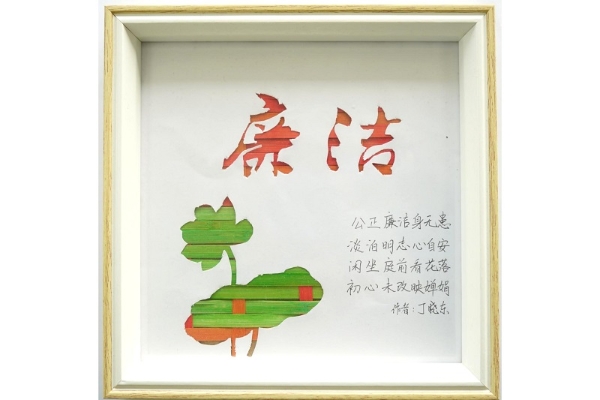 廉洁
公正廉洁身无患
淡泊明志心自安
闲坐庭前看花落
初心未改映婵娟
作者：丁晓东